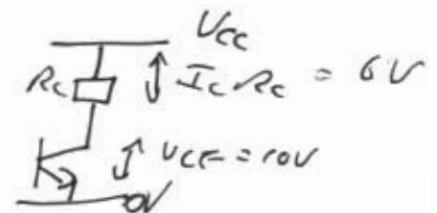 Ucc
Rc Ic Rc = 6V
UCE = 10V
0V